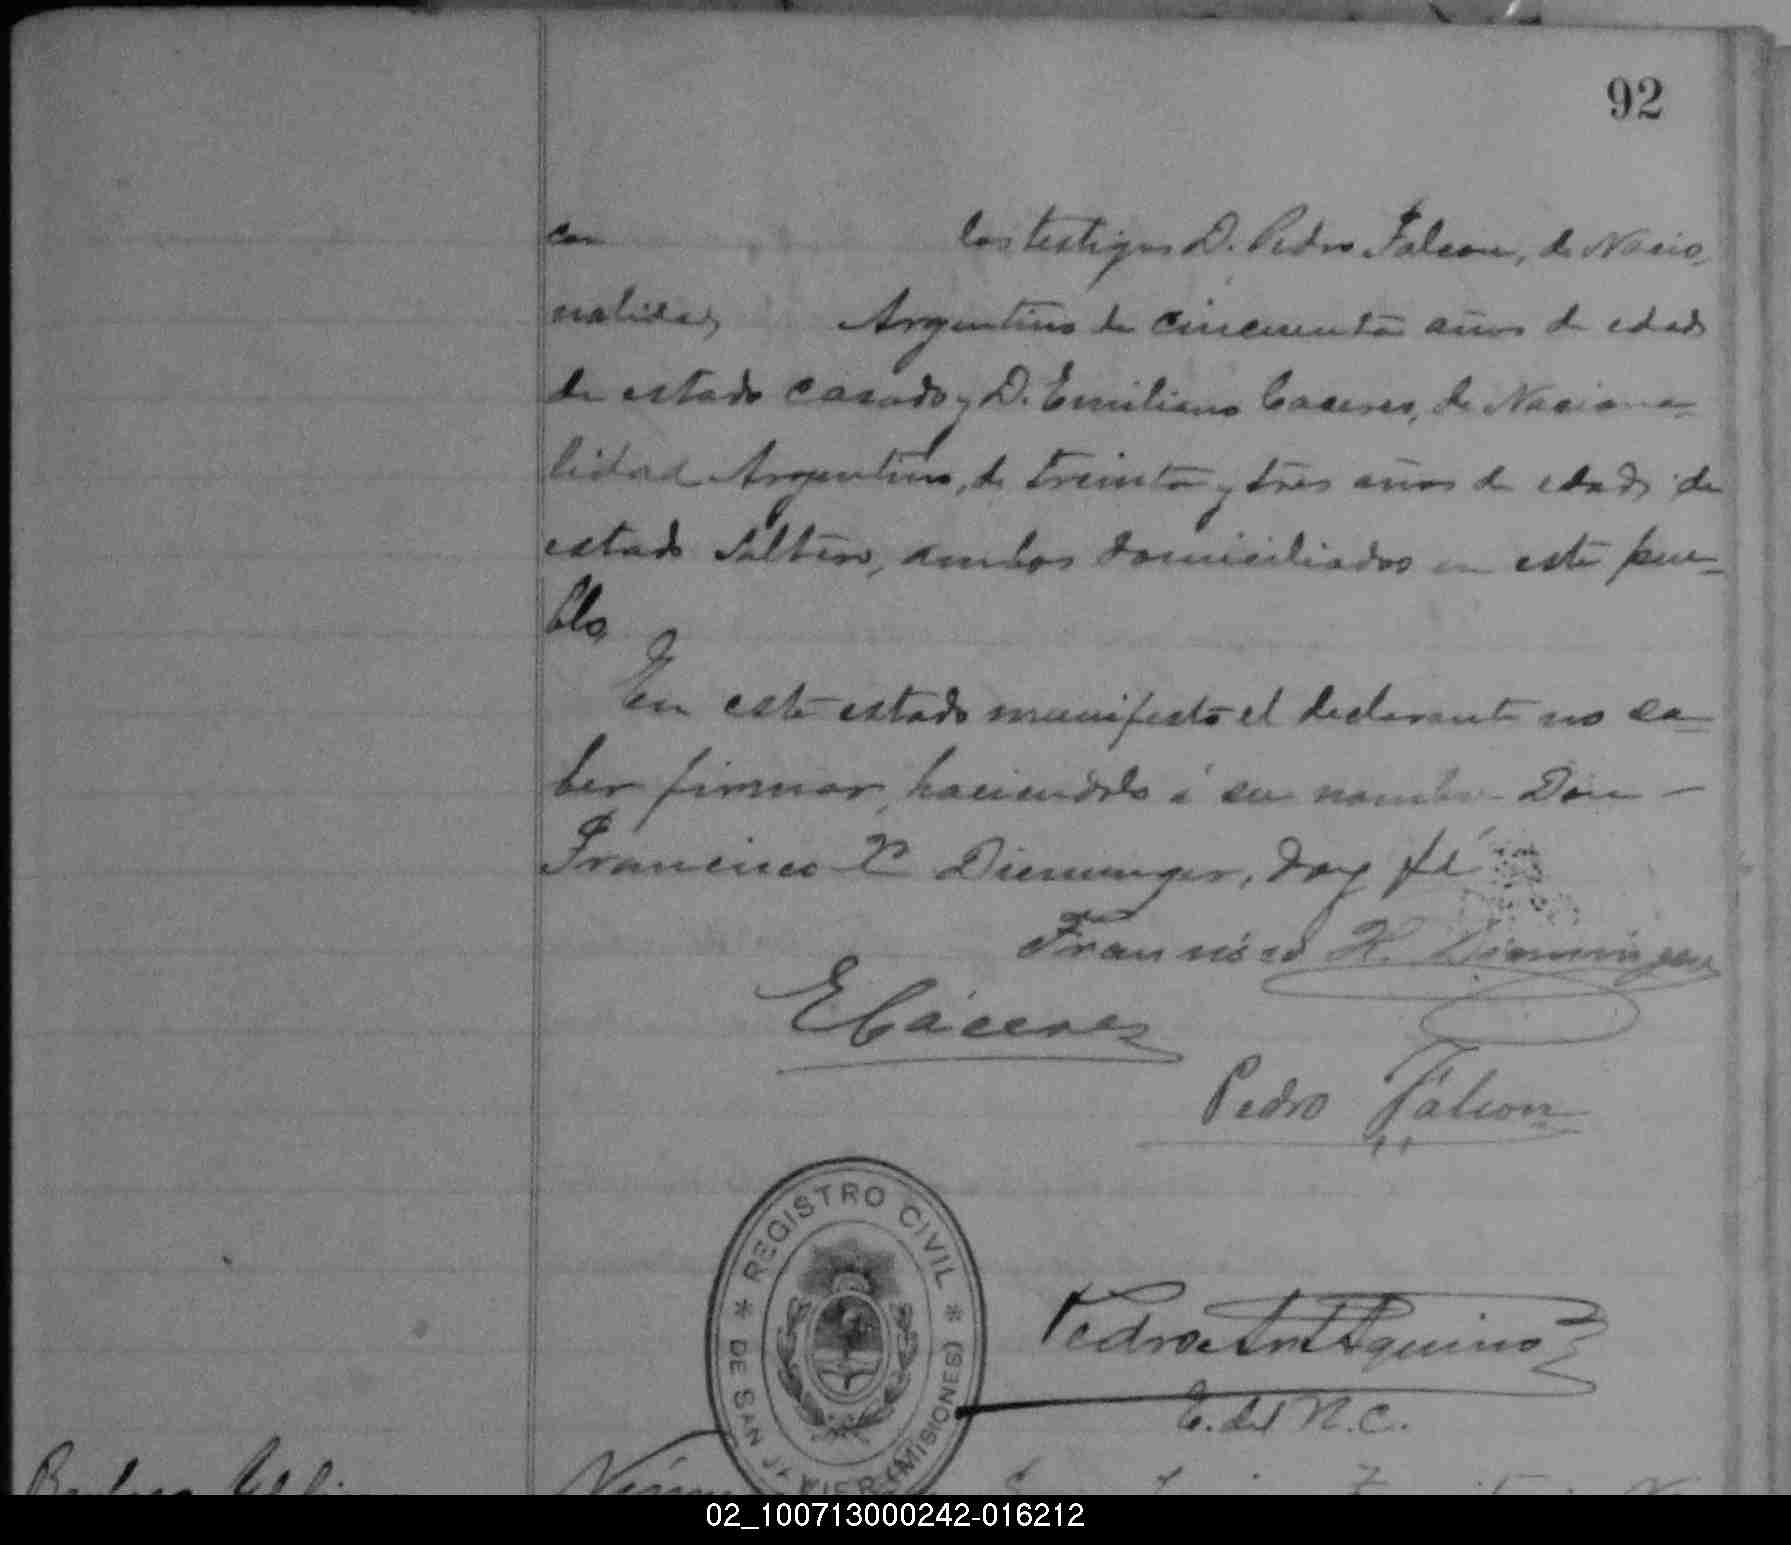 92
con los testigos D. Pedro Falcon, de Nacio
nalidad Argentino de cincuenta años de edad
de estado casado y D. Emiliano Caceres, de Naciona-
lidad Argentino, de treinta y tres años de edad de
estado soltero, ambos domiciliados en este pue-
blo,
En este estado manifestó el declarante no sa-
ber firmar, haciendolo á su nombre Don -
Francisco doy fé
Francisco
E Cáceres
Pedro Falcon
REGISTRO CIVIL * DE SAN JAVIER (MISIONES) *
Pedro Aquino
E. del R.C.
02_100713000242-016212